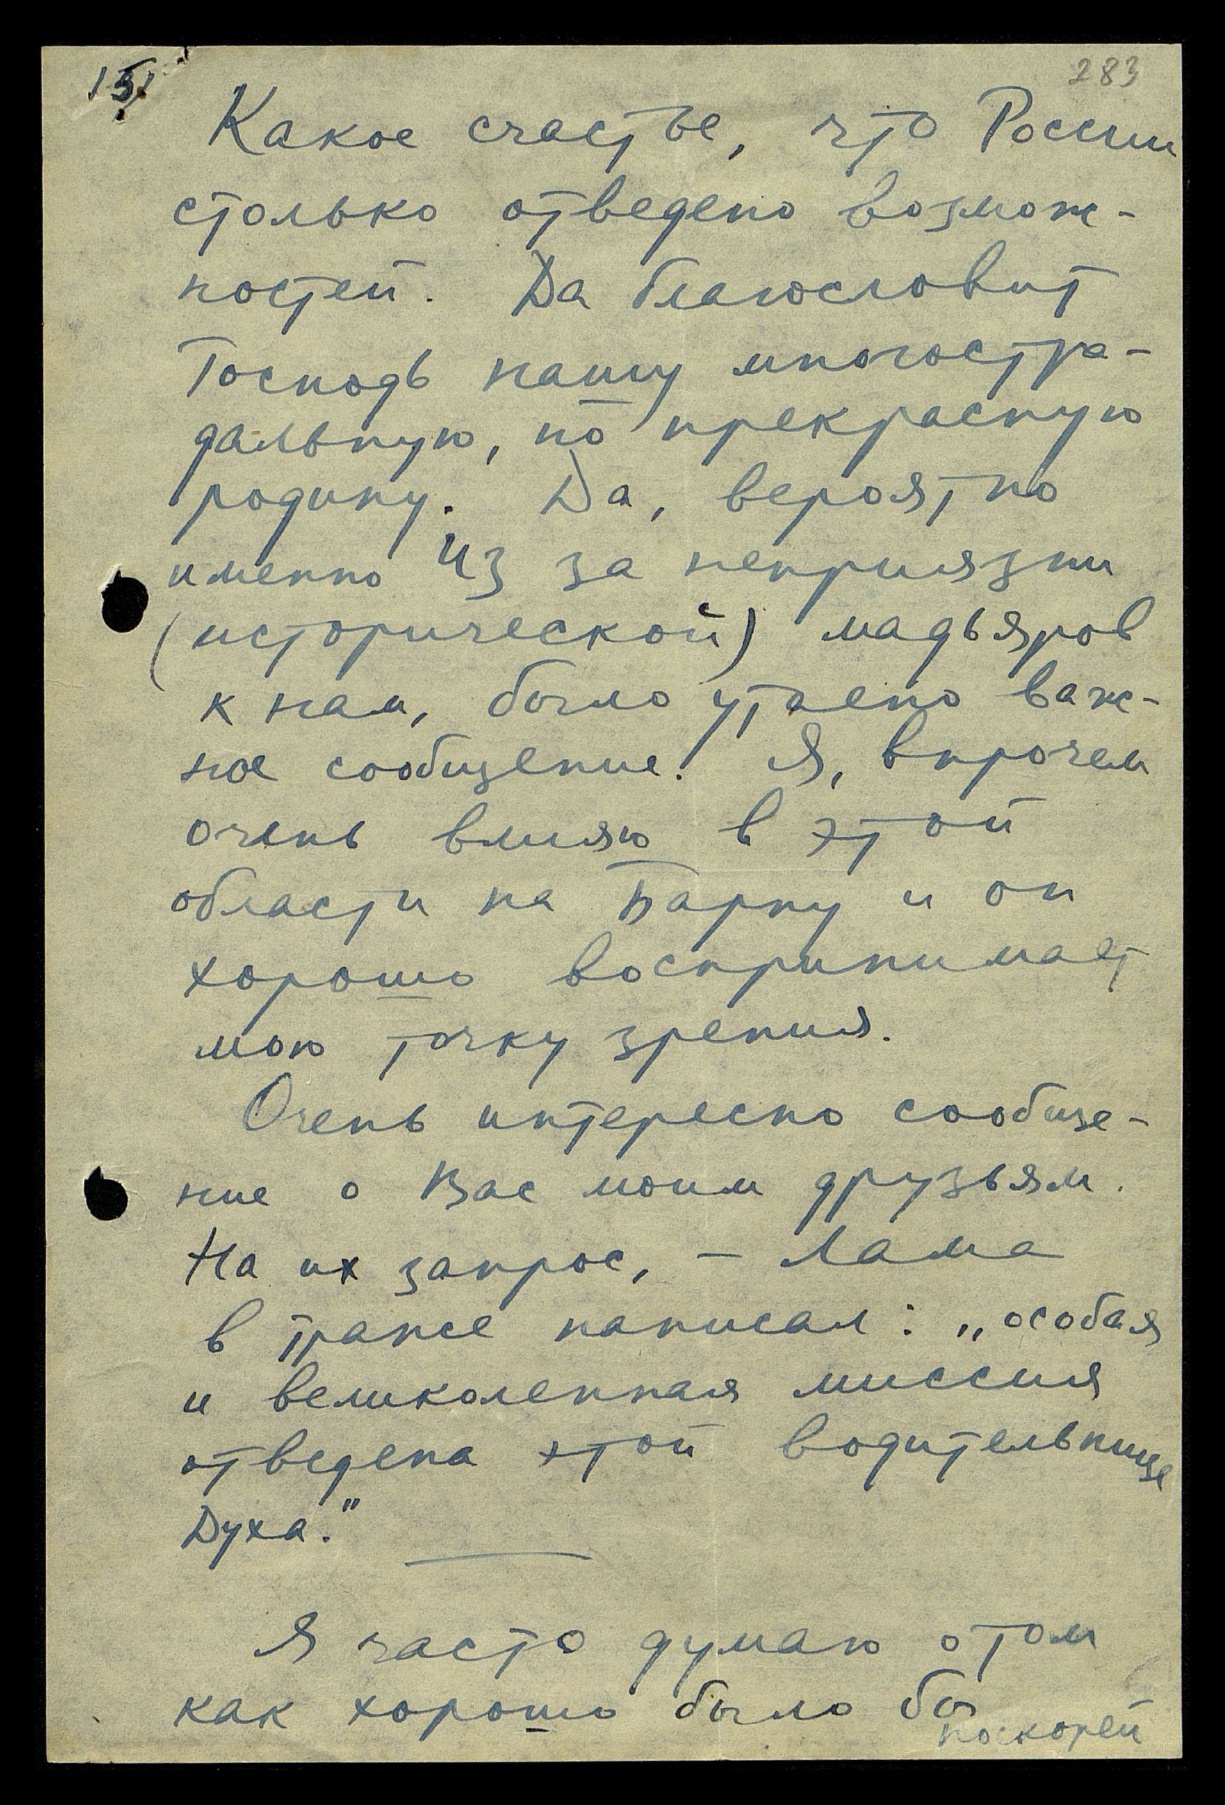 15/ 283
Какое счастье, что России
столько отведено возмож-
ностей. Да благословит
Господь нашу многостра-
дальную, но прекрасную
родину. Да, вероятно
именно из за неприязни
(исторической) мадьяров
к нам, было утаено важ-
ное сообщение! Я, впрочем
очень влияю в этой
области на Барну и он
хорошо воспринимает
мою точку зрения.
Очень интересно сообще-
ние о Вас моим друзьям.
На их запрос, – Лама
в трансе написал: „особая
и великолепная миссия
отведена этой водительнице
Духа."
Я часто думаю о том
как хорошо было бы
поскорей